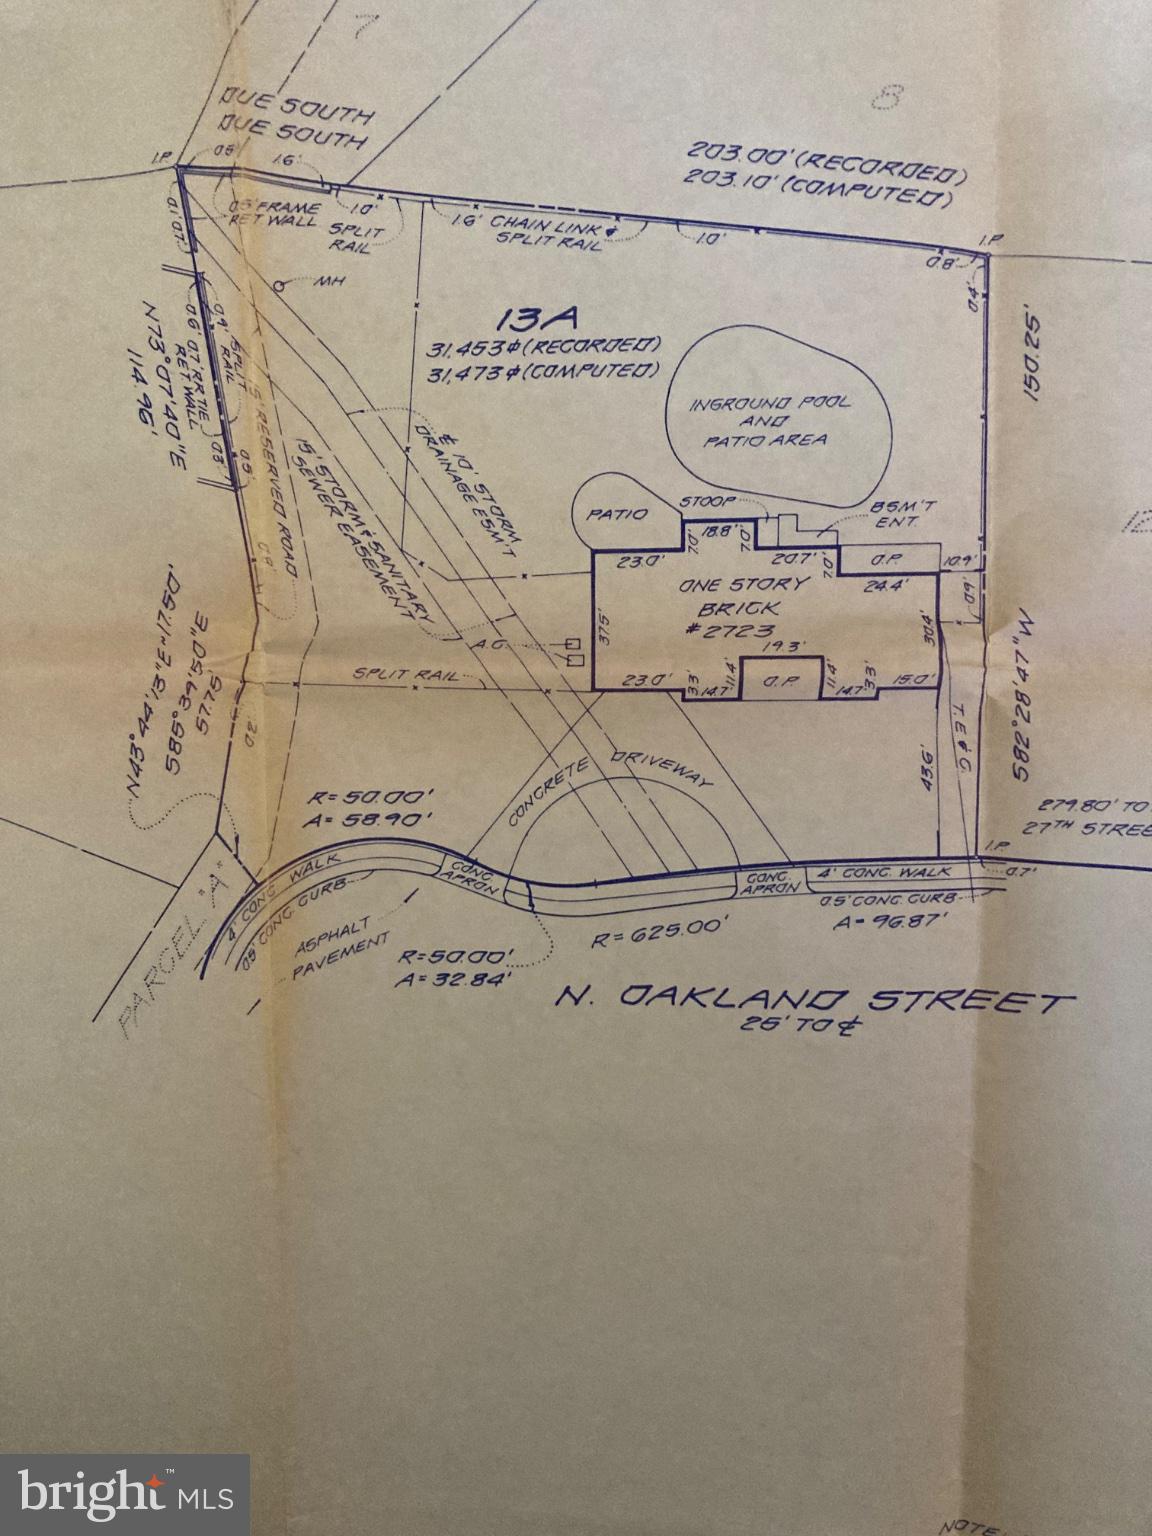 7
8
DUE SOUTH
DUE SOUTH
203.00' (RECORDED)
203.10' (COMPUTED)
I.P.
0.8'
1.6'
0.5' FRAME
RET WALL
1.0'
SPLIT
RAIL
1.6' CHAIN LINK &
SPLIT RAIL
1.0'
I.P.
0.8'
0.4'
0.1'
0.7'
MH
13A
31,453⌽ (RECORDED)
31,473⌽ (COMPUTED)
150.25'
N73°07'40"E
114.96'
0.6'
0.7' RRTIE
RET WALL
0.4'
SPLIT
RAIL
0.3'
0.5'
15' RESERVED ROAD
15' STORM & SANITARY
SEWER EASEMENT
℄ 10' STORM
DRAINAGE ESM'T
INGROUND POOL
AND
PATIO AREA
12
PATIO
STOOP
BSM'T
ENT.
18.8'
7.0'
7.0'
23.0'
20.7'
7.0'
O.P.
10.9'
24.4'
0.9'
ONE STORY
BRICK
#2723
37.5'
30.4'
A.C.
19.3'
SPLIT RAIL
23.0'
3.3'
14.7'
11.4'
O.P.
11.4'
14.7'
3.3'
15.0'
S85°39'50"E
57.75'
T.E & G.
S82°28'47"W
43.6'
CONCRETE DRIVEWAY
R=50.00'
A=58.90'
279.80' TO
27TH STREE
I.P.
0.7'
4' CONC WALK
0.5' CONC CURB
CONC.
APRON
CONC.
APRON
4' CONC. WALK
0.5' CONC. CURB
PARCEL "A"
ASPHALT
PAVEMENT
R=50.00'
A=32.84'
R=625.00'
A=96.87'
N. OAKLAND STREET
25' TO ℄
NOTE
bright™ MLS